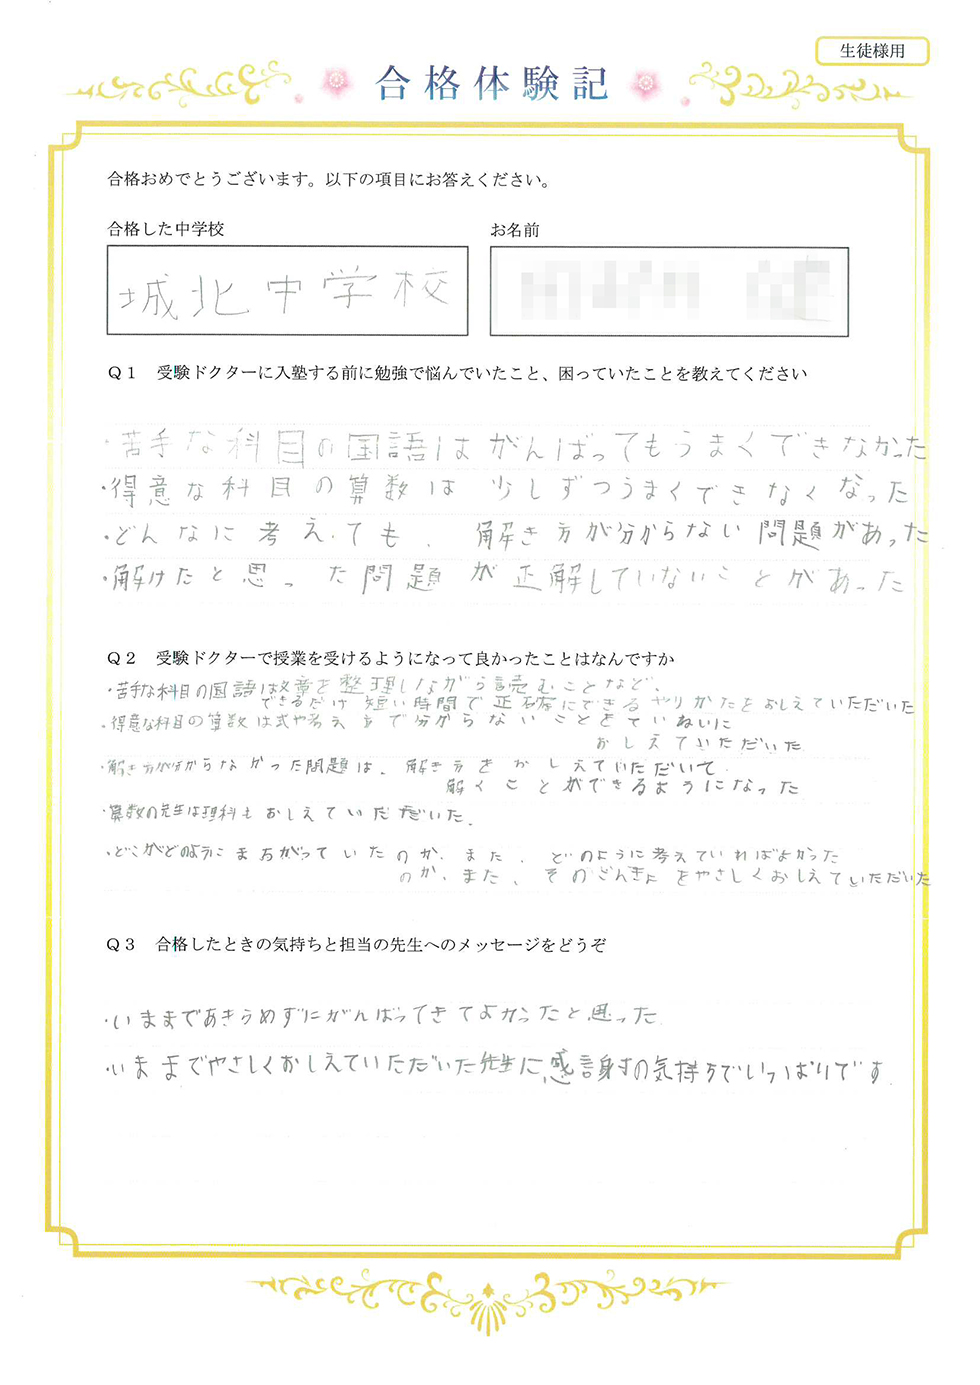 生徒様用
合格体験記
合格おめでとうございます。以下の項目にお答えください。
合格した中学校
お名前
城北中学校
Q1 受験ドクターに入塾する前に勉強で悩んでいたこと、困っていたことを教えてください
・苦手な科目の国語はがんばってもうまくできなかった
・得意な科目の算数は少しずつうまくできなくなった
・どんなに考えても、解き方が分からない問題があった
・解けたと思った問題が正解していないことがあった
Q2 受験ドクターで授業を受けるようになって良かったことはなんですか
・苦手な科目の国語は文章を整理しながら読むことなど、
できるだけ短い時間で正確にできるやりかたをおしえていただいた
・得意な科目の算数は式や考え方で分からないことをていねいに
おしえていただいた
・解き方が分からなかった問題は、解き方をおしえていただいて
解くことができるようになった
・算数の先生は理科もおしえていただいた。
・どこがどのようにまちがっていたのか、また、どのように考えていればよかった
のか、また、そのこんきょをやさしくおしえていただいた
Q3 合格したときの気持ちと担当の先生へのメッセージをどうぞ
・いままであきらめずにがんばってきてよかったと思った
・いままでやさしくおしえていただいた先生に、感謝の気持ちでいっぱいです